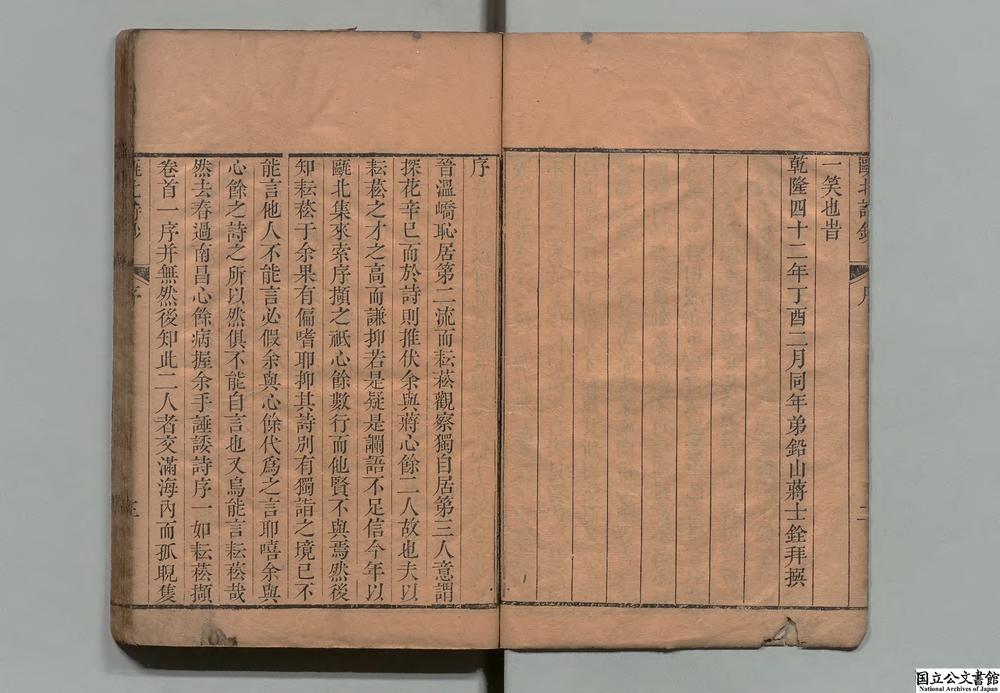 甌北詩鈔
序
二
一笑也旹
乾隆四十二年丁酉二月同年弟鉛山蔣士銓拜撰
序
晉溫嶠恥居第二流而耘菘觀察獨自居第三人意謂
探花辛巳而於詩則推伏余與蔣心餘二人故也夫以
耘菘之才之高而謙抑若是疑是讕語不足信今年以
甌北集來索序擷之祇心餘數行而他賢不與焉然後
知耘菘于余果有偏嗜耶抑其詩別有獨詣之境已不
能言他人不能言必假余與心餘代爲之言耶嘻余與
心餘之詩之所以然俱不能自言也又烏能言耘菘哉
然去春過南昌心餘病握余手諈諉詩序一如耘菘擷
卷首一序并無然後知此二人者交滿海內而孤睨隻
甌北詩鈔
序
三
国立公文書館
National Archives of Japan